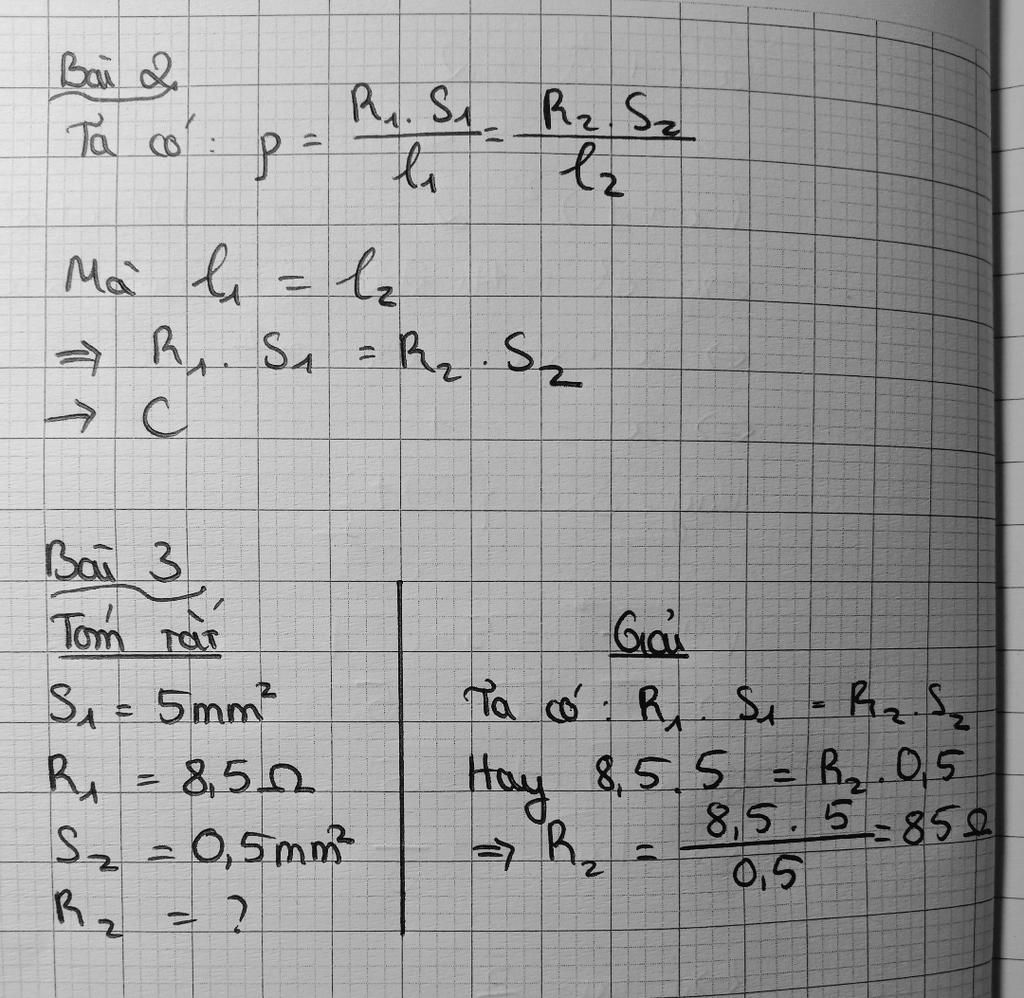 Bài 2
Ta có: ρ = R₁. S₁ / l₁ = R₂. S₂ / l₂
Mà l₁ = l₂
⇒ R₁. S₁ = R₂. S₂
→ C
Bài 3
Tóm tắt
S₁ = 5mm²
R₁ = 8,5Ω
S₂ = 0,5mm²
R₂ = ?
Giải
Ta có: R₁. S₁ = R₂. S₂
Hay 8,5. 5 = R₂. 0,5
⇒ R₂ = 8,5. 5 / 0,5 = 85Ω